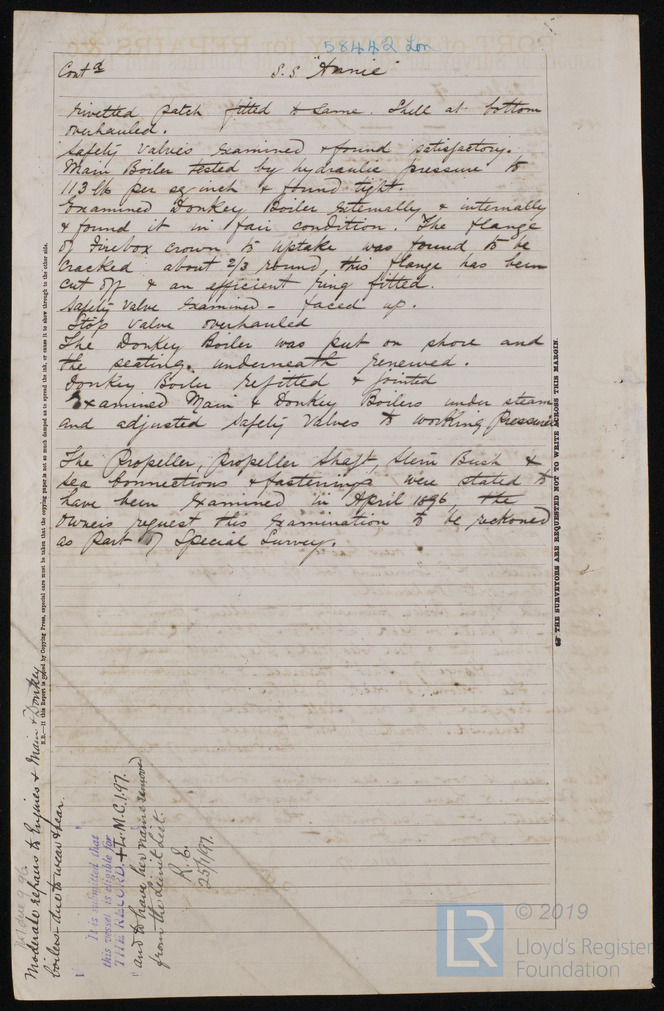 58442 Lon
Cont d S.S "Annie"
rivetted patch fitted to same. Shell at bottom
overhauled.
Safety valves examined & found satisfactory.
Main Boiler tested by hydraulic pressure to
113 lb per sq inch & found tight.
Examined Donkey Boiler externally & internally
& found it in fair condition. The flange
of Firebox crown to uptake was found to be
cracked about 2/3 round this flange has been
cut off & an efficient ring fitted.
Safety valve examined - faced up.
Stop valve overhauled
The Donkey Boiler was put on shore and
the seating underneath renewed.
Donkey Boiler refitted & jointed
Examined Main & Donkey Boilers under steam
and adjusted Safety Valves to working pressures
The Propeller, Propeller Shaft, Stern Bush &
sea connections & fastenings were stated to
have been examined in April 1896, the
Owners request this examination to be reckoned
as part of Special Survey.
N.B.—If this Report is copied by Copying Press, especial care must be taken that the copying paper is not so much damped as to spread the ink, or cause it to show through to the other side.
THE SURVEYORS ARE REQUESTED NOT TO WRITE ACROSS THIS MARGIN.
Moderate repairs to Engines & Main & Donkey
boilers due to wear & tear.
It is submitted that
this vessel is eligible for
THE RECORD. + L.M.C. 1.97.
and to have her name removed
from the Limit List.
R.E.
25/1/97.
© 2019
LR
Lloyd's Register
Foundation